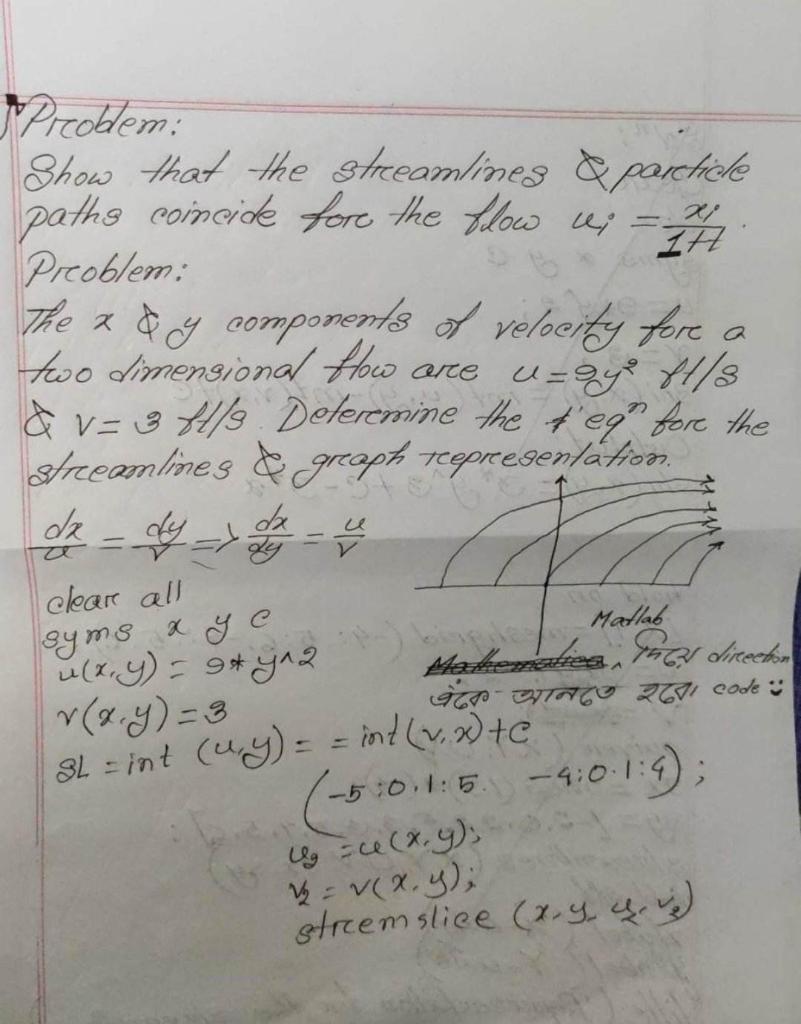 Problem:
Show that the streamlines & particle
paths coincide for the flow ui = xi/1+t.
Problem:
The x & y components of velocity for a
two dimensional flow are u = 9y² ft/s
& v = 3 ft/s. Determine the eqⁿ for the
streamlines & graph representation.
dx/u = dy/v => dx/dy = u/v
clear all
syms x y c
u(x,y) = 9*y^2
v(x,y) = 3
SL = int (u,y) = = int (v,x)+c
(-5:0.1:5. -4:0.1:4);
u2 = u(x,y);
v2 = v(x,y);
streemslice (x,y, u2, v2)
Matlab
Mathematica দিয়ে direction
এঁকে আনতে হবে। code